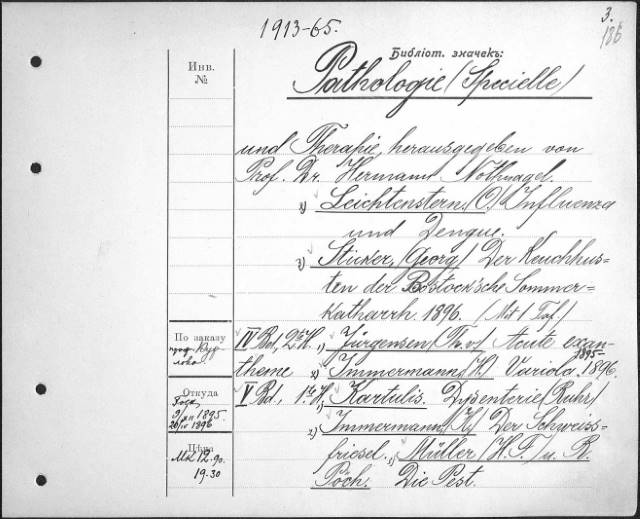 1913-65.
3.
186
Библіот. значекъ:
Инв.
№
Pathologie (Specielle)
und Therapie, herausgegeben von
Prof. Dr. Hermann Nothnagel.
1) Leichtenstern, (O.) Influenza
und Dengue.
2) Sticker, (Georg) Der Keuchhus=
ten der Bostock'sche Sommer=
katharrh. 1896. (Mit 1 Taf.)
По заказу
проф. Кур-
лова.
IV Bd., 2te H. 1) Jürgensen (Th. v) Acute exan-
theme 2) Immermann (H.) Variola, 1895-1896.
Откуда
9/XII 1895.
26/IV 1896
V Bd, 1ste H. 1) Kartulis. Dysenterie (Ruhr)
2) Immermann (H.) Der Schweiss-
friesel. Müller (H. F.) u. R.
Pöch. Die Pest.
Цѣна
Mk 12.90.
19.30